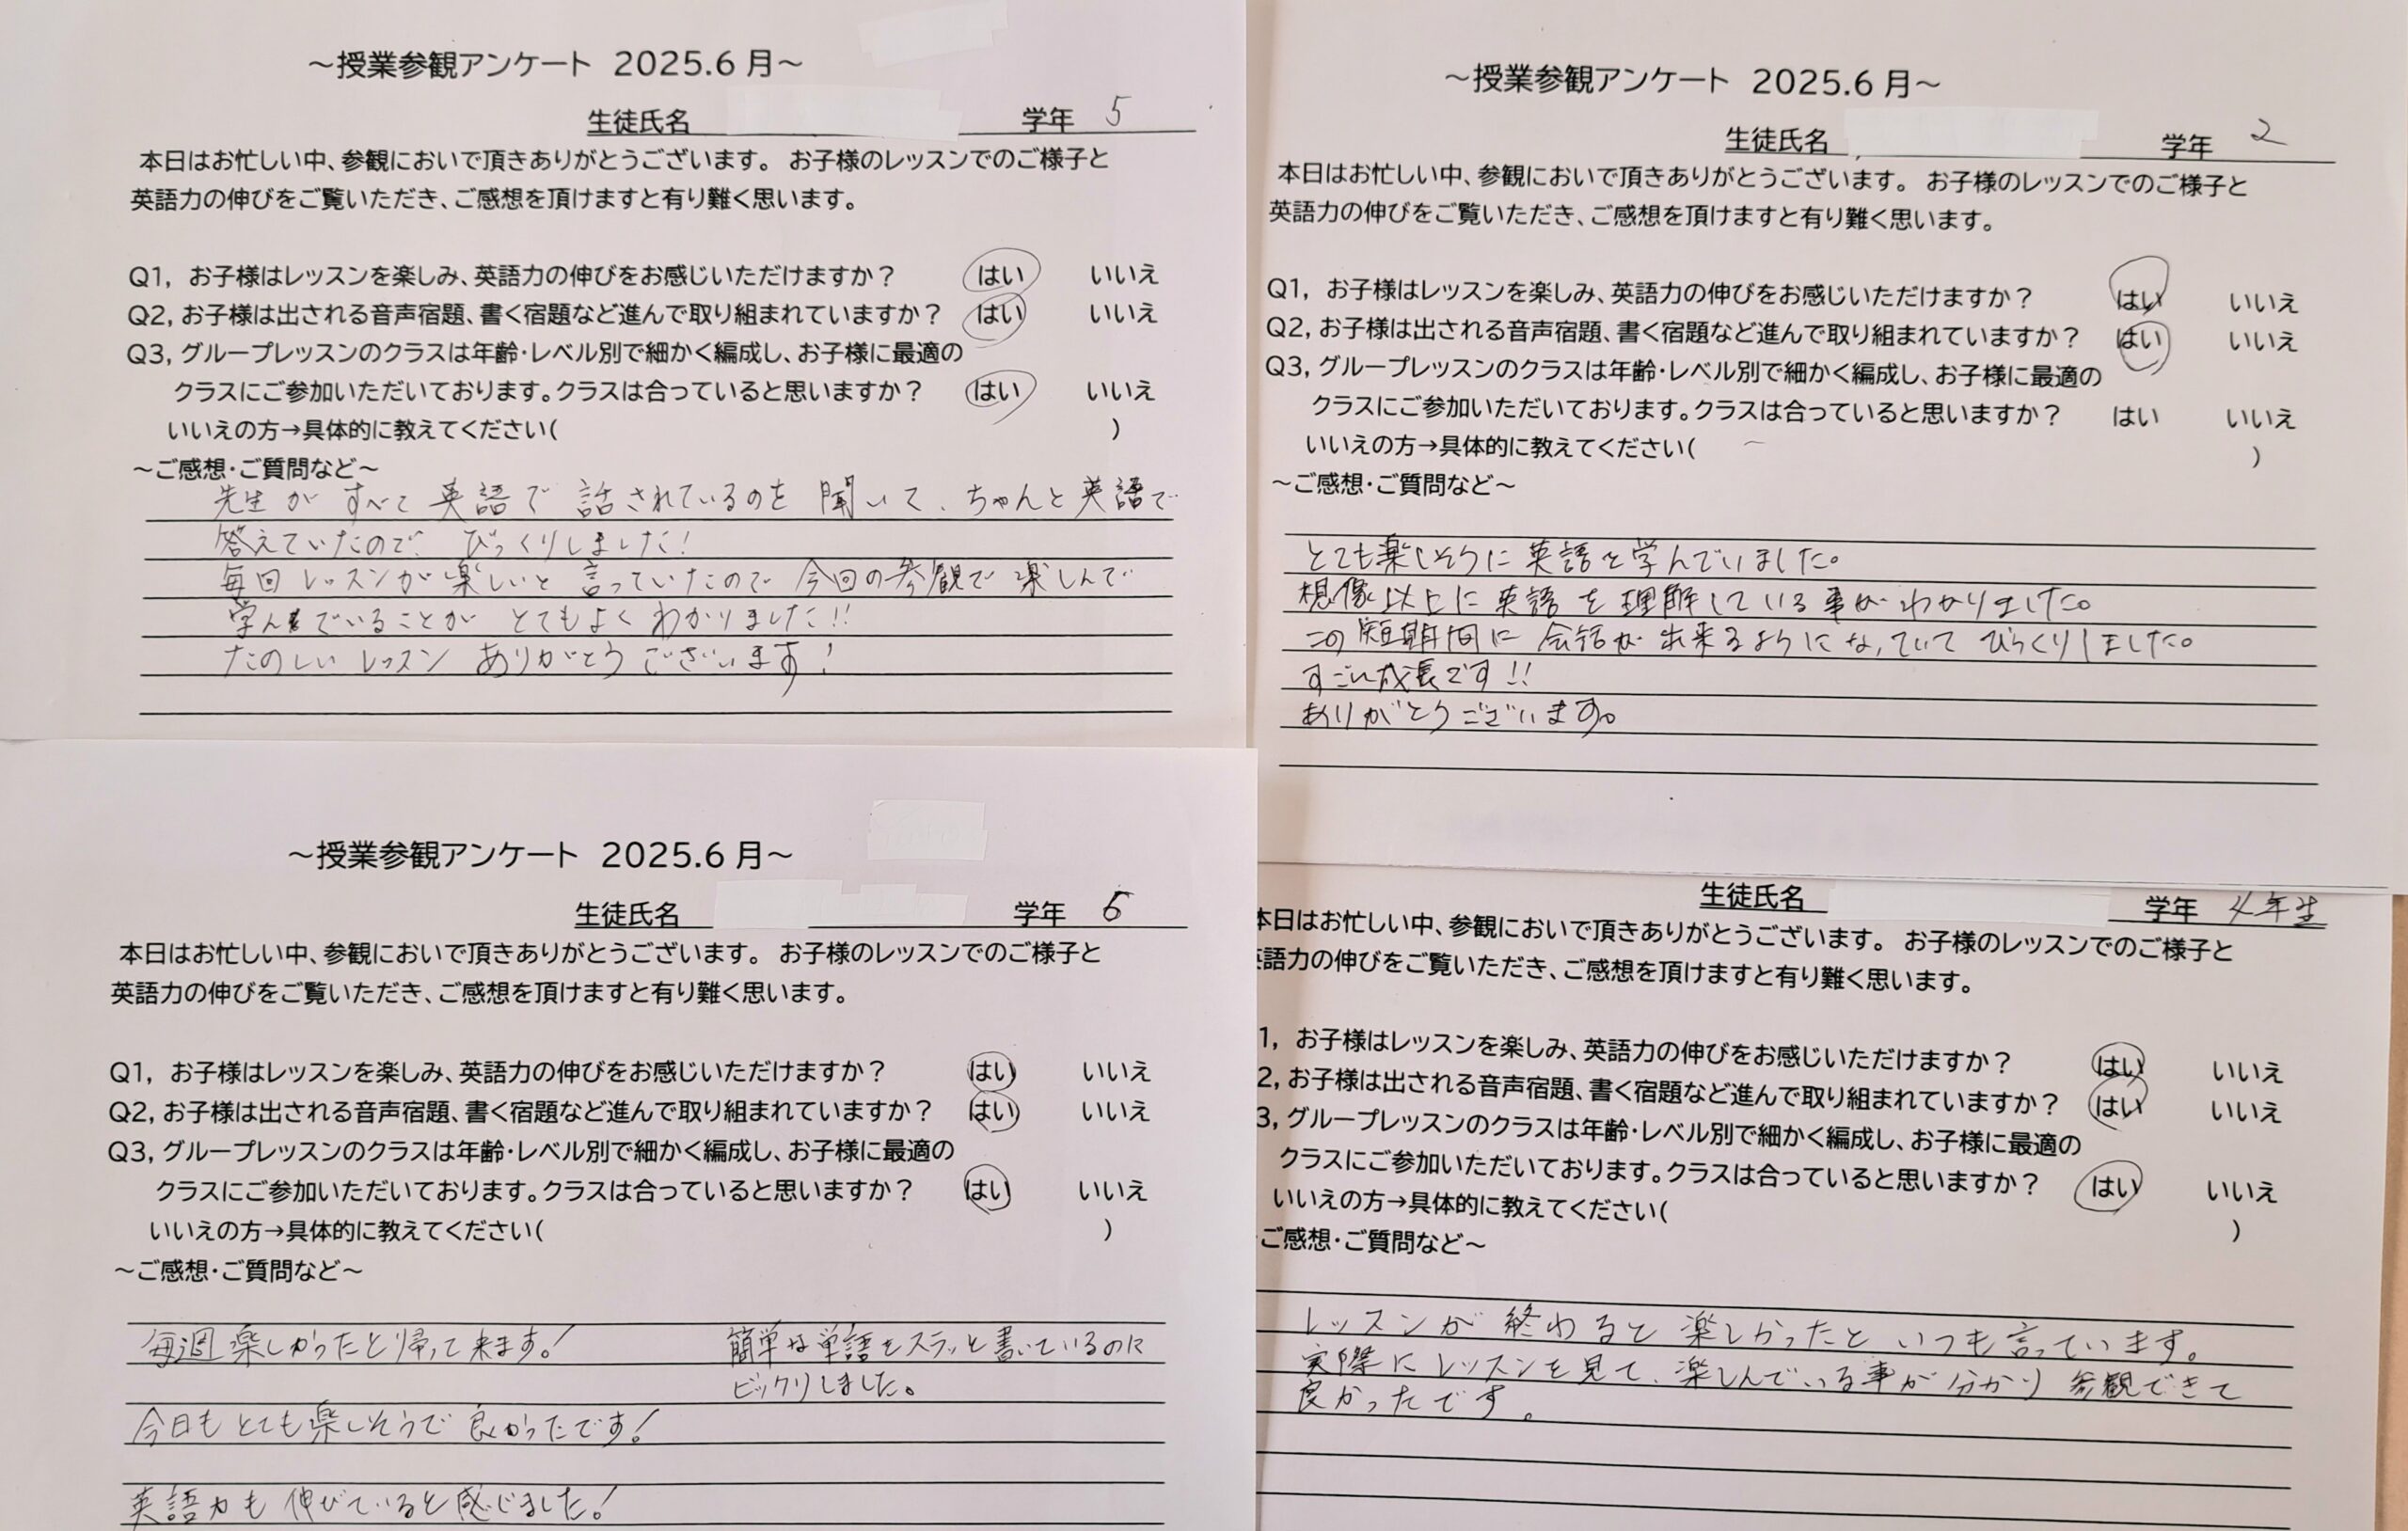 ～授業参観アンケート 2025.6月～
生徒氏名 学年 5
本日はお忙しい中、参観においで頂きありがとうございます。 お子様のレッスンでのご様子と
英語力の伸びをご覧いただき、ご感想を頂けますと有り難く思います。
Q1, お子様はレッスンを楽しみ、英語力の伸びをお感じいただけますか？ はい いいえ
Q2, お子様は出される音声宿題、書く宿題など進んで取り組まれていますか？ はい いいえ
Q3, グループレッスンのクラスは年齢・レベル別で細かく編成し、お子様に最適の
クラスにご参加いただいております。クラスは合っていると思いますか？ はい いいえ
いいえの方→具体的に教えてください( )
～ご感想・ご質問など～
先生が すべて 英語で 話されているのを 聞いて、ちゃんと英語で
答えていたので、びっくりしました！
毎回 レッスンが楽しいと 言っていたので 今回の参観で 楽しんで
学んでいることが とてもよく わかりました！！
たのしい レッスン ありがとう ございます！
～授業参観アンケート 2025.6月～
生徒氏名 学年 2
本日はお忙しい中、参観においで頂きありがとうございます。 お子様のレッスンでのご様子と
英語力の伸びをご覧いただき、ご感想を頂けますと有り難く思います。
Q1, お子様はレッスンを楽しみ、英語力の伸びをお感じいただけますか？ はい いいえ
Q2, お子様は出される音声宿題、書く宿題など進んで取り組まれていますか？ はい いいえ
Q3, グループレッスンのクラスは年齢・レベル別で細かく編成し、お子様に最適の
クラスにご参加いただいております。クラスは合っていると思いますか？ はい いいえ
いいえの方→具体的に教えてください( )
～ご感想・ご質問など～
とても楽しそうに 英語を学んでいました。
想像以上に 英語 を 理解している事が わかりました。
この短期間に 会話が 出来るようになっていて びっくりしました。
すごい成長です！！
ありがとうございます。
～授業参観アンケート 2025.6月～
生徒氏名 学年 6
本日はお忙しい中、参観においで頂きありがとうございます。 お子様のレッスンでのご様子と
英語力の伸びをご覧いただき、ご感想を頂けますと有り難く思います。
Q1, お子様はレッスンを楽しみ、英語力の伸びをお感じいただけますか？ はい いいえ
Q2, お子様は出される音声宿題、書く宿題など進んで取り組まれていますか？ はい いいえ
Q3, グループレッスンのクラスは年齢・レベル別で細かく編成し、お子様に最適の
クラスにご参加いただいております。クラスは合っていると思いますか？ はい いいえ
いいえの方→具体的に教えてください( )
～ご感想・ご質問など～
毎週楽しかったと帰って来ます！
今日もとても楽しそうで良かったです！
英語力も伸びていると感じました！
簡単な単語をスラッと書いているのに
ビックリしました。
生徒氏名 学年 4年生
本日はお忙しい中、参観においで頂きありがとうございます。 お子様のレッスンでのご様子と
語力の伸びをご覧いただき、ご感想を頂けますと有り難く思います。
1, お子様はレッスンを楽しみ、英語力の伸びをお感じいただけますか？ はい いいえ
2, お子様は出される音声宿題、書く宿題など進んで取り組まれていますか？ はい いいえ
3, グループレッスンのクラスは年齢・レベル別で細かく編成し、お子様に最適の
クラスにご参加いただいております。クラスは合っていると思いますか？ はい いいえ
いいえの方→具体的に教えてください( )
ご感想・ご質問など～
レッスンが 終わると 楽しかったと いつも言っています。
実際に レッスンを見て、楽しんでいる事が分かり 参観できて
良かったです。